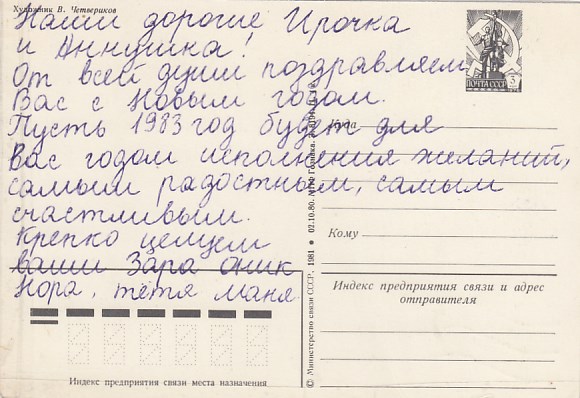 Художник В. Четвериков
Наши дорогие Ирочка
и Аннушка!
От всей души поздравляем
Вас с Новым годом.
Пусть 1983 год будет для
Вас годом исполнения желаний,
самым радостным, самым
счастливым.
Крепко целуем
ваши Зара Оник
Нора, тётя Маня
ПОЧТА СССР
Куда
Кому
Индекс предприятия связи и адрес
отправителя
Индекс предприятия связи места назначения
© Министерство связи СССР. 1981 ● 02.10.80. Гознака.